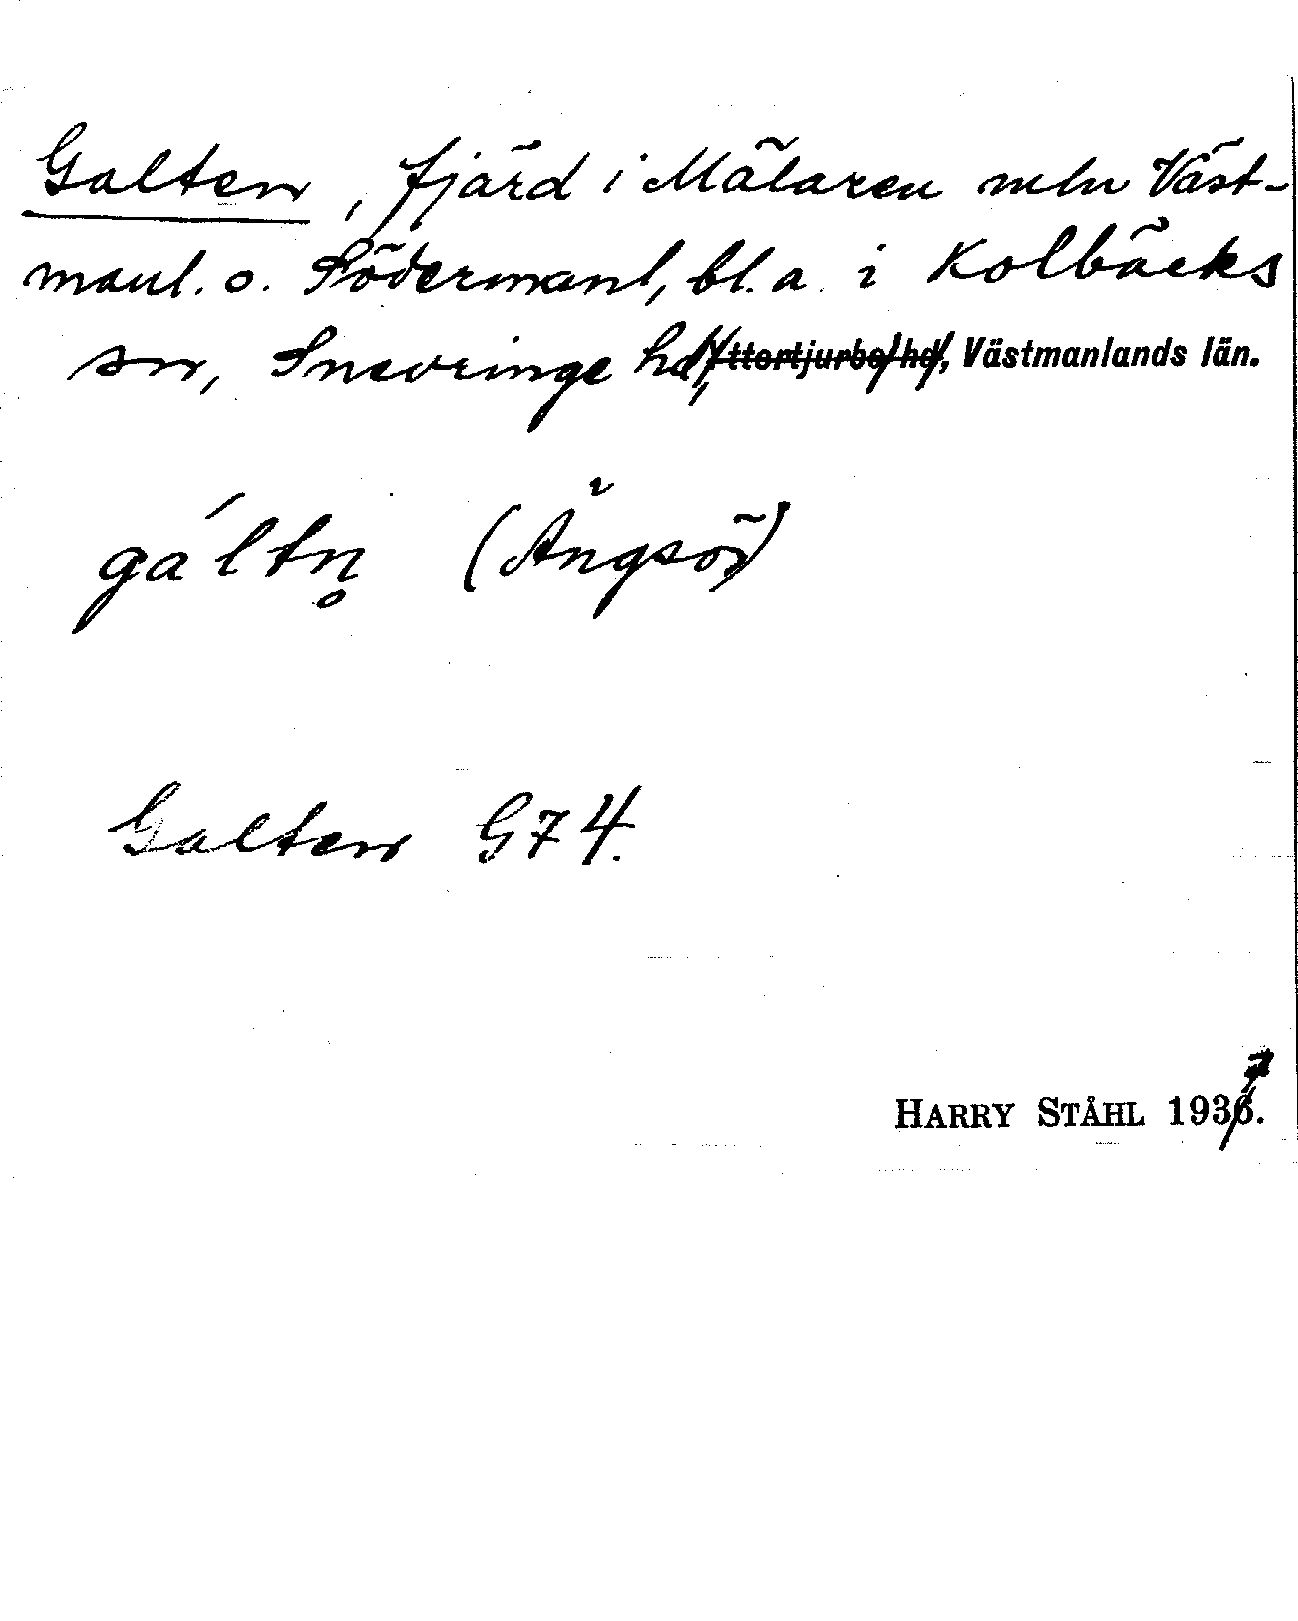 Galten, fjärd i Mälaren mln Väst-
manl. o. Södermanl, bl. a. i Kolbäcks
sn, Snevringe hd, Yttertjurbo hd, Västmanlands län.
gáltn̥ (Ängsö)
Galten G74.
HARRY STÅHL 1937.